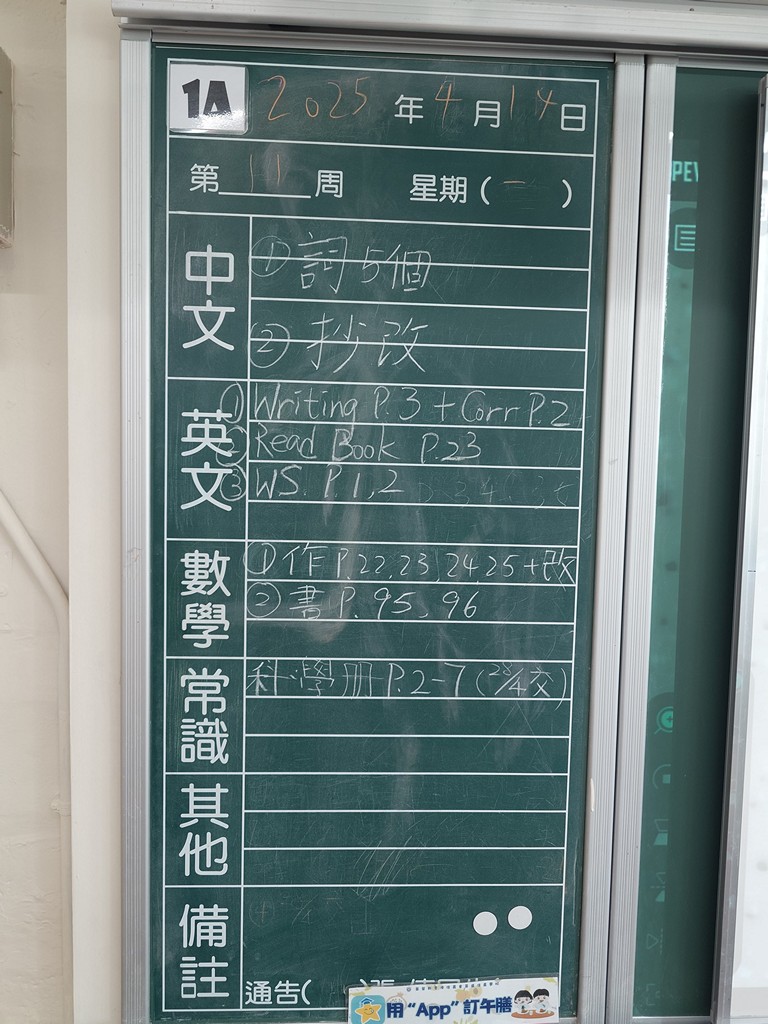 1A 2025年4月14日
第11周 星期(一)
中文
① 詞5個
② 抄改
英文
① Writing P.3 + Corr P.2
② Read Book P.23
③ WS. P.1,2
數學
① 作 P.22,23,24,25+改
② 書 P.95、96
常識
科學冊 P.2-7 (28/4交)
其他
備註
通告(
用“App”訂午膳